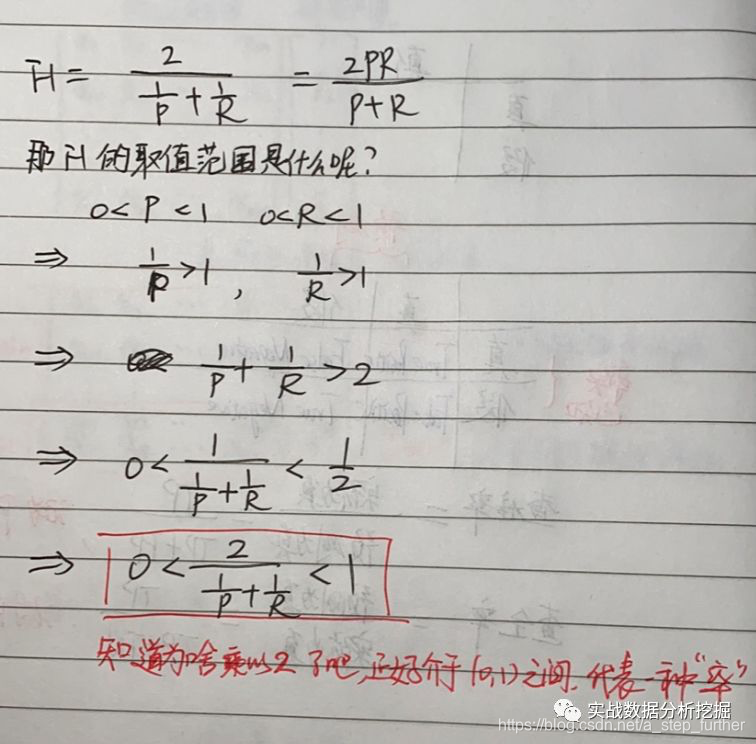 F1 = 2 / (1/P + 1/R) = 2PR / (P+R)
那F1的取值范围是什么呢?
0<P<1 0<R<1
⇒ 1/P >1, 1/R >1
⇒ 1/P + 1/R >2
⇒ 0< 1 / (1/P + 1/R) < 1/2
⇒ 0< 2 / (1/P + 1/R) <1
知道为啥乘以2了吧,正好介于(0,1)之间,代表一种"率"
实战数据分析挖掘
https://blog.csdn.net/a_step_further